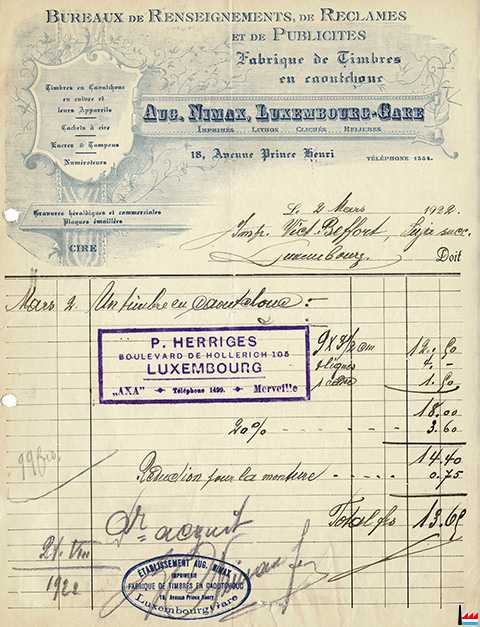 BUREAUX DE RENSEIGNEMENTS, DE RECLAMES
ET DE PUBLICITES
Fabrique de Timbres
en caoutchouc
Timbres en Caoutchouc
en cuivre et
leurs Appareils
Cachets à cire
Encres & Tampons
Numéroteurs
AUG. NIMAX, LUXEMBOURG-GARE
IMPRIMÉS LITHOS CLICHÉS RELIURES
18, Avenue Prince Henri
TÉLÉPHONE 1554.
Gravures héraldiques et commerciales
Plaques émaillées
CIRE
L. 2 Mars 1922.
Impr. Vict. Beffort, succ.
Luxembourg
Doit
Mars 2. Un timbre en Caoutchouc :
P. HERRIGES
BOULEVARD DE HOLLERICH 105
LUXEMBOURG
„AXA" Téléphone 1499. Merveille
9 x 3 1/2 cm 12.50
4 lignes 4.-
1 cadre 1.50
18.00
20% 3.60
14.40
Réduction pour la monture 0.75
Total frs 13.65
99 frs.
Pr acquit
21. VIII
1922
ETABLISSEMENT AUG. NIMAX
IMPRIMERIE
FABRIQUE DE TIMBRES EN CAOUTCHOUC
18, Avenue Prince Henry
Luxembourg-Gare